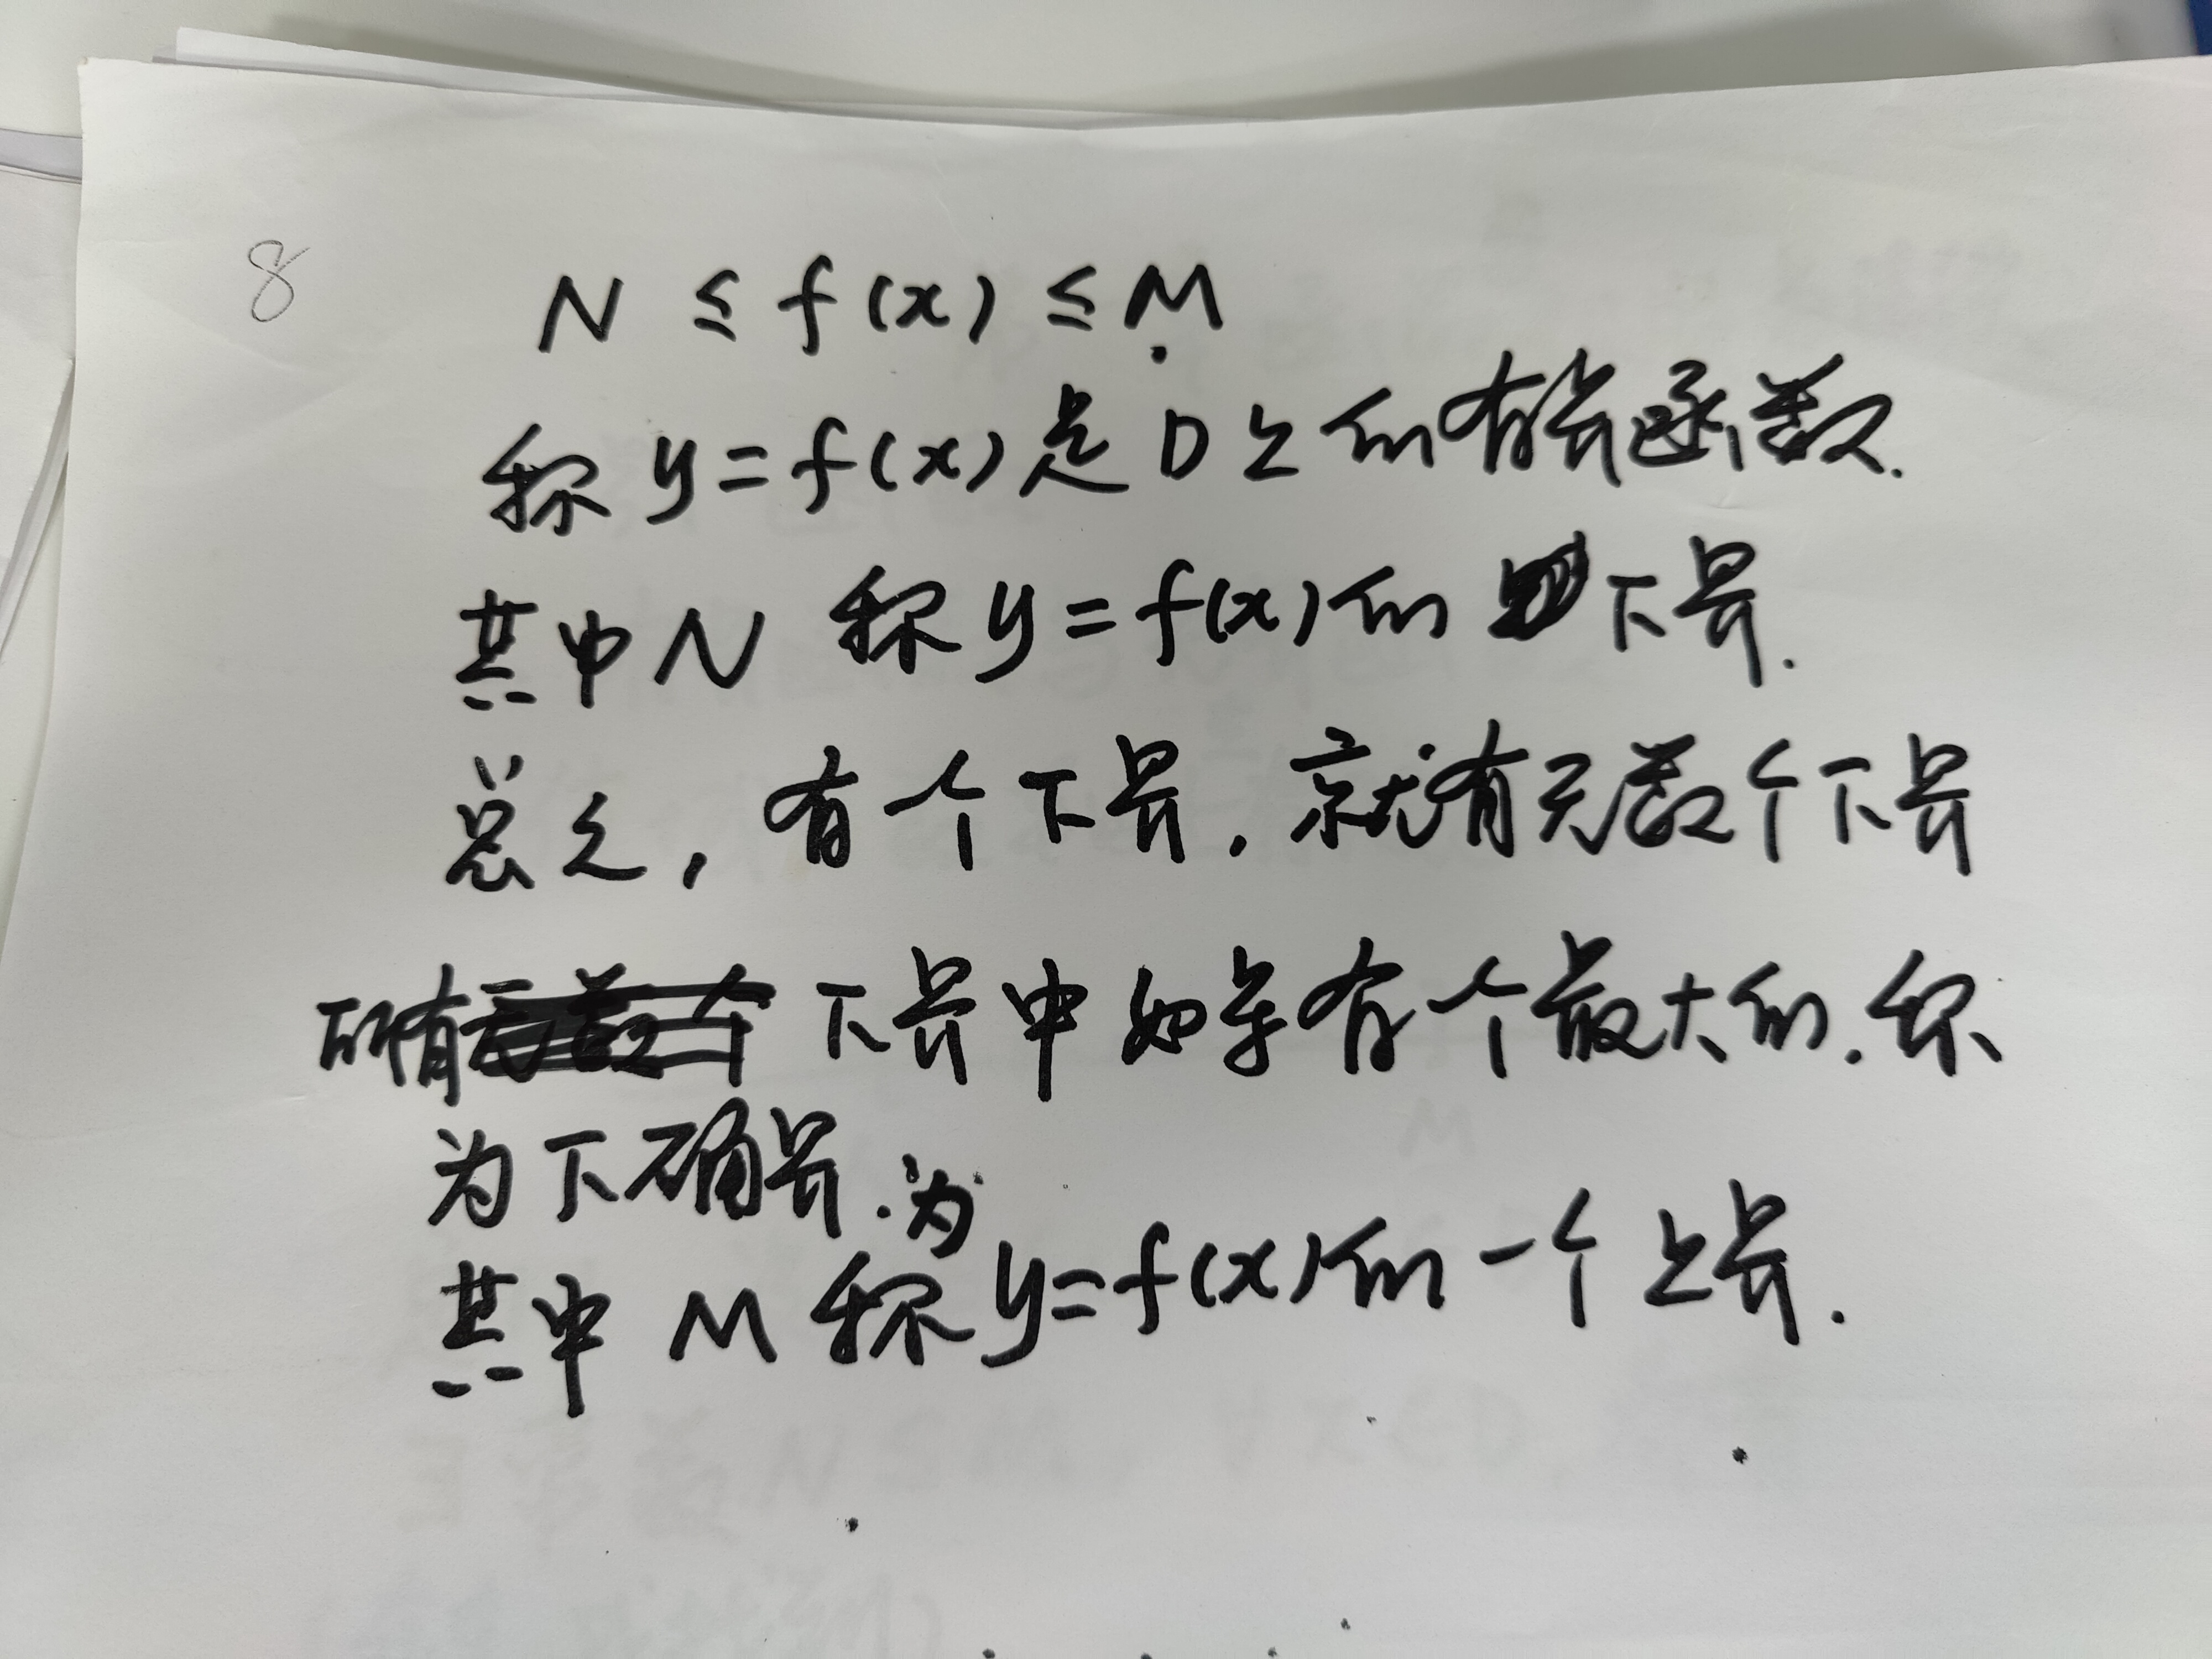 8
N ≤ f(x) ≤ M.
称 y=f(x)是D上的有界函数.
其中N 称y=f(x)的 下界.
总之,有个下界.就有无数个下界
所有 下界中如果有个最大的.称
为下确界.
其中 M 称为 y=f(x)的一个上界.